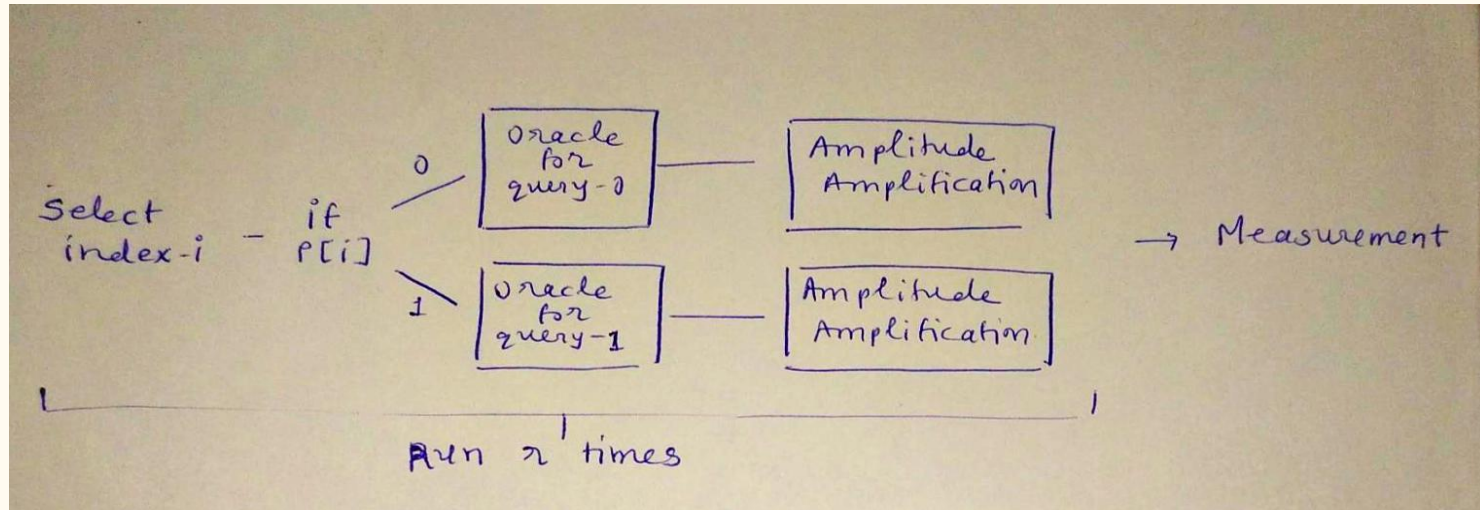 Select
index-i
if
P[i]
0
Oracle
for
query-0
Amplitude
Amplification
1
Oracle
for
query-1
Amplitude
Amplification
→ Measurement
Run r times